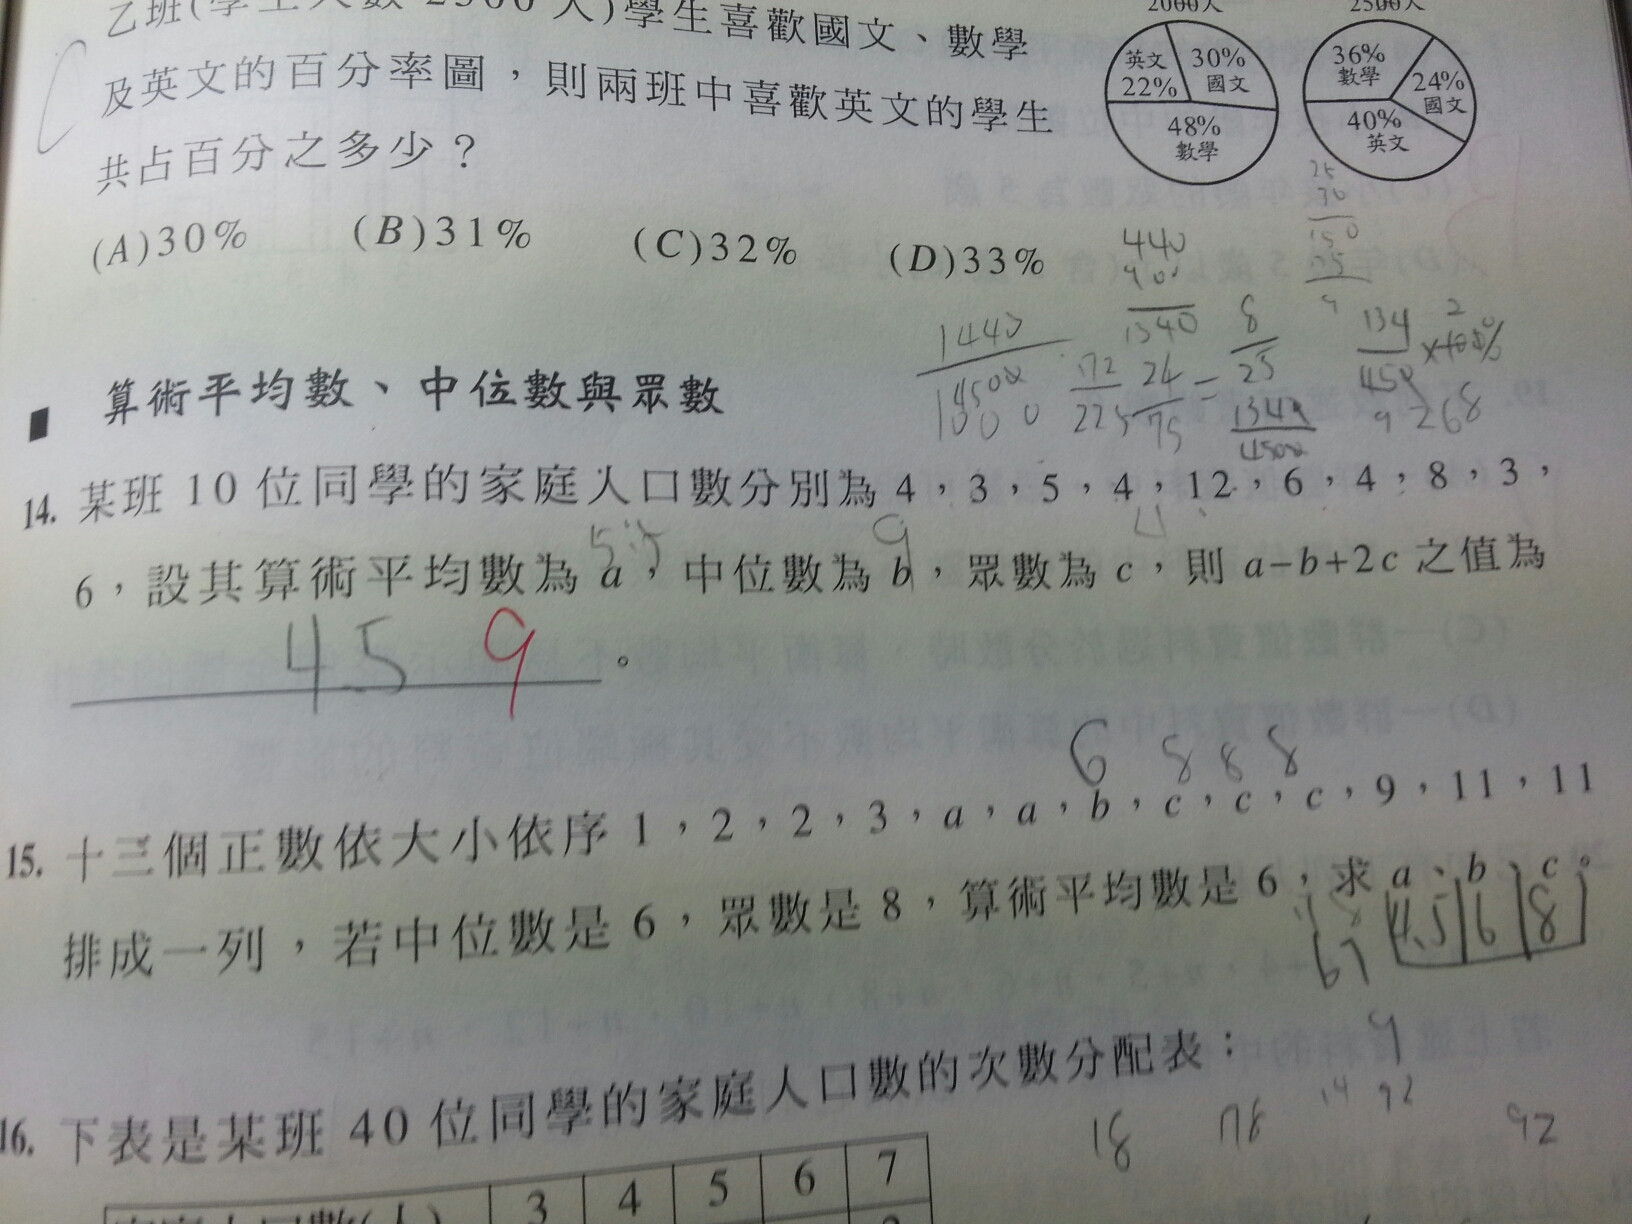 乙班(學生人數2500人)學生喜歡國文、數學
及英文的百分率圖，則兩班中喜歡英文的學生
共占百分之多少？
(A)30% (B)31% (C)32% (D)33%
2000人
英文 22%
30% 國文
48% 數學
2500人
36% 數學
24% 國文
40% 英文
440
900
1340
25
30
150
1440
4500
72
225
24
75
=
8
25
1340
4500
134
450
2
9 268
■ 算術平均數、中位數與眾數
14. 某班 10 位同學的家庭人口數分別為 4，3，5，4，12，6，4，8，3，
6，設其算術平均數為 a，中位數為 b，眾數為 c，則 a−b+2c 之值為
45 9 。
6 8 8 8
15. 十三個正數依大小依序 1，2，2，3，a，a，b，c，c，c，9，11，11
排成一列，若中位數是 6，眾數是 8，算術平均數是 6，求 a、b、c。
67 4.5 6 8
9
16. 下表是某班 40 位同學的家庭人口數的次數分配表：
18 78 14 92 92
家庭人口數(人) 3 4 5 6 7